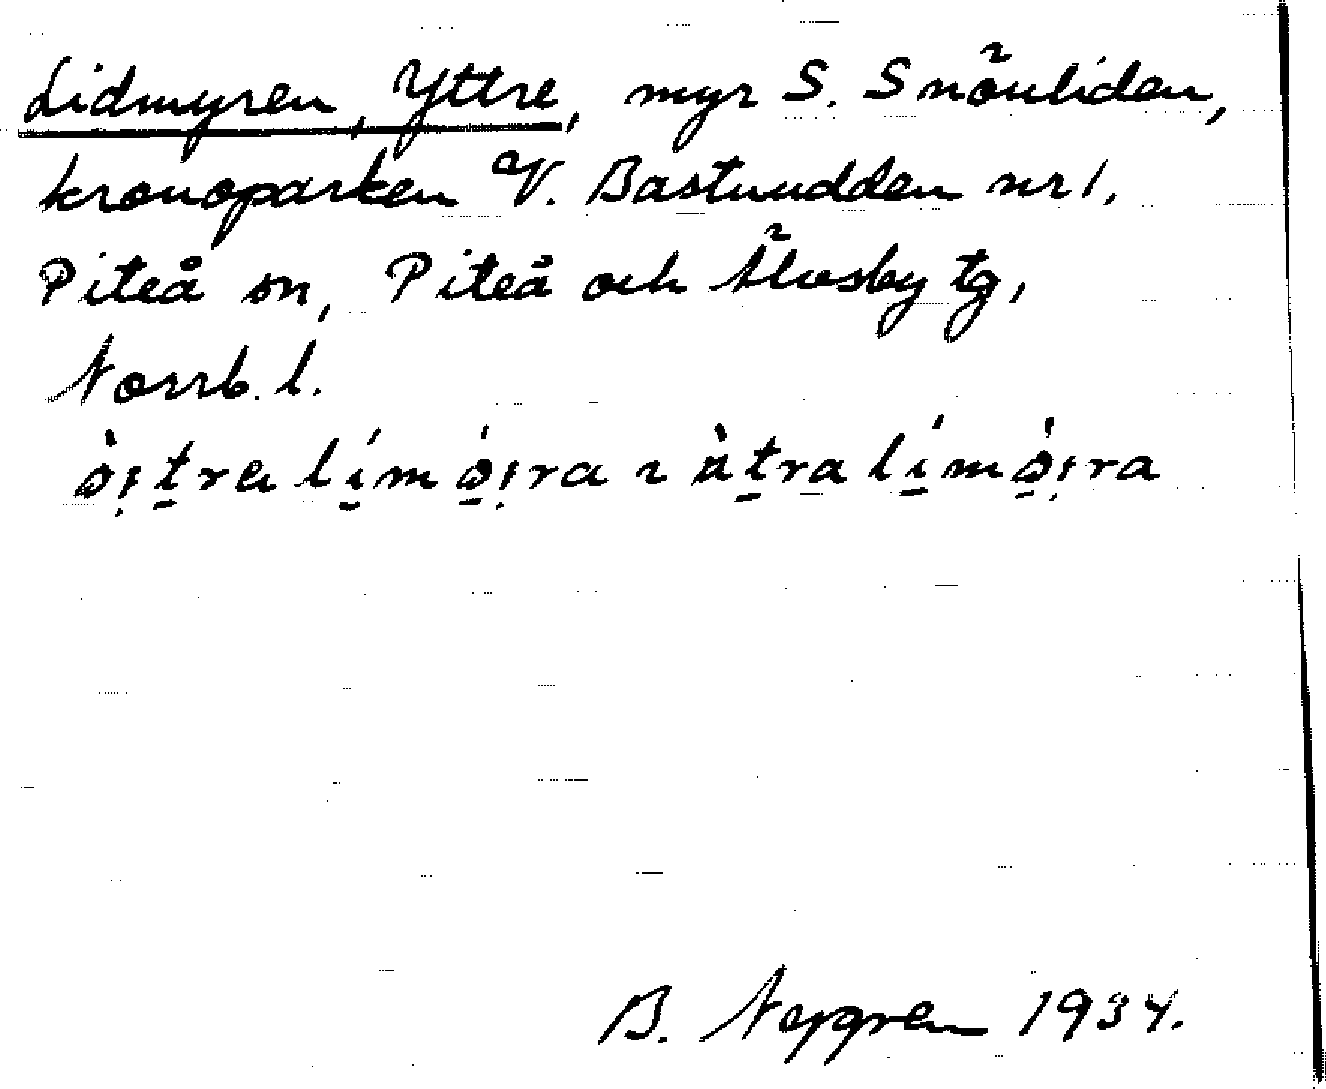 Lidmyren, Yttre, myr S. Snöuliden,
kronoparken V. Bastuudden nr 1.
Piteå sn, Piteå och Älvsby tg,
Norrb. l.
òi̩t̠ra lí̠mò̠i̩ra ɿ ùt̠ra lí̠mò̠i̩ra
B. Nygren 1934.